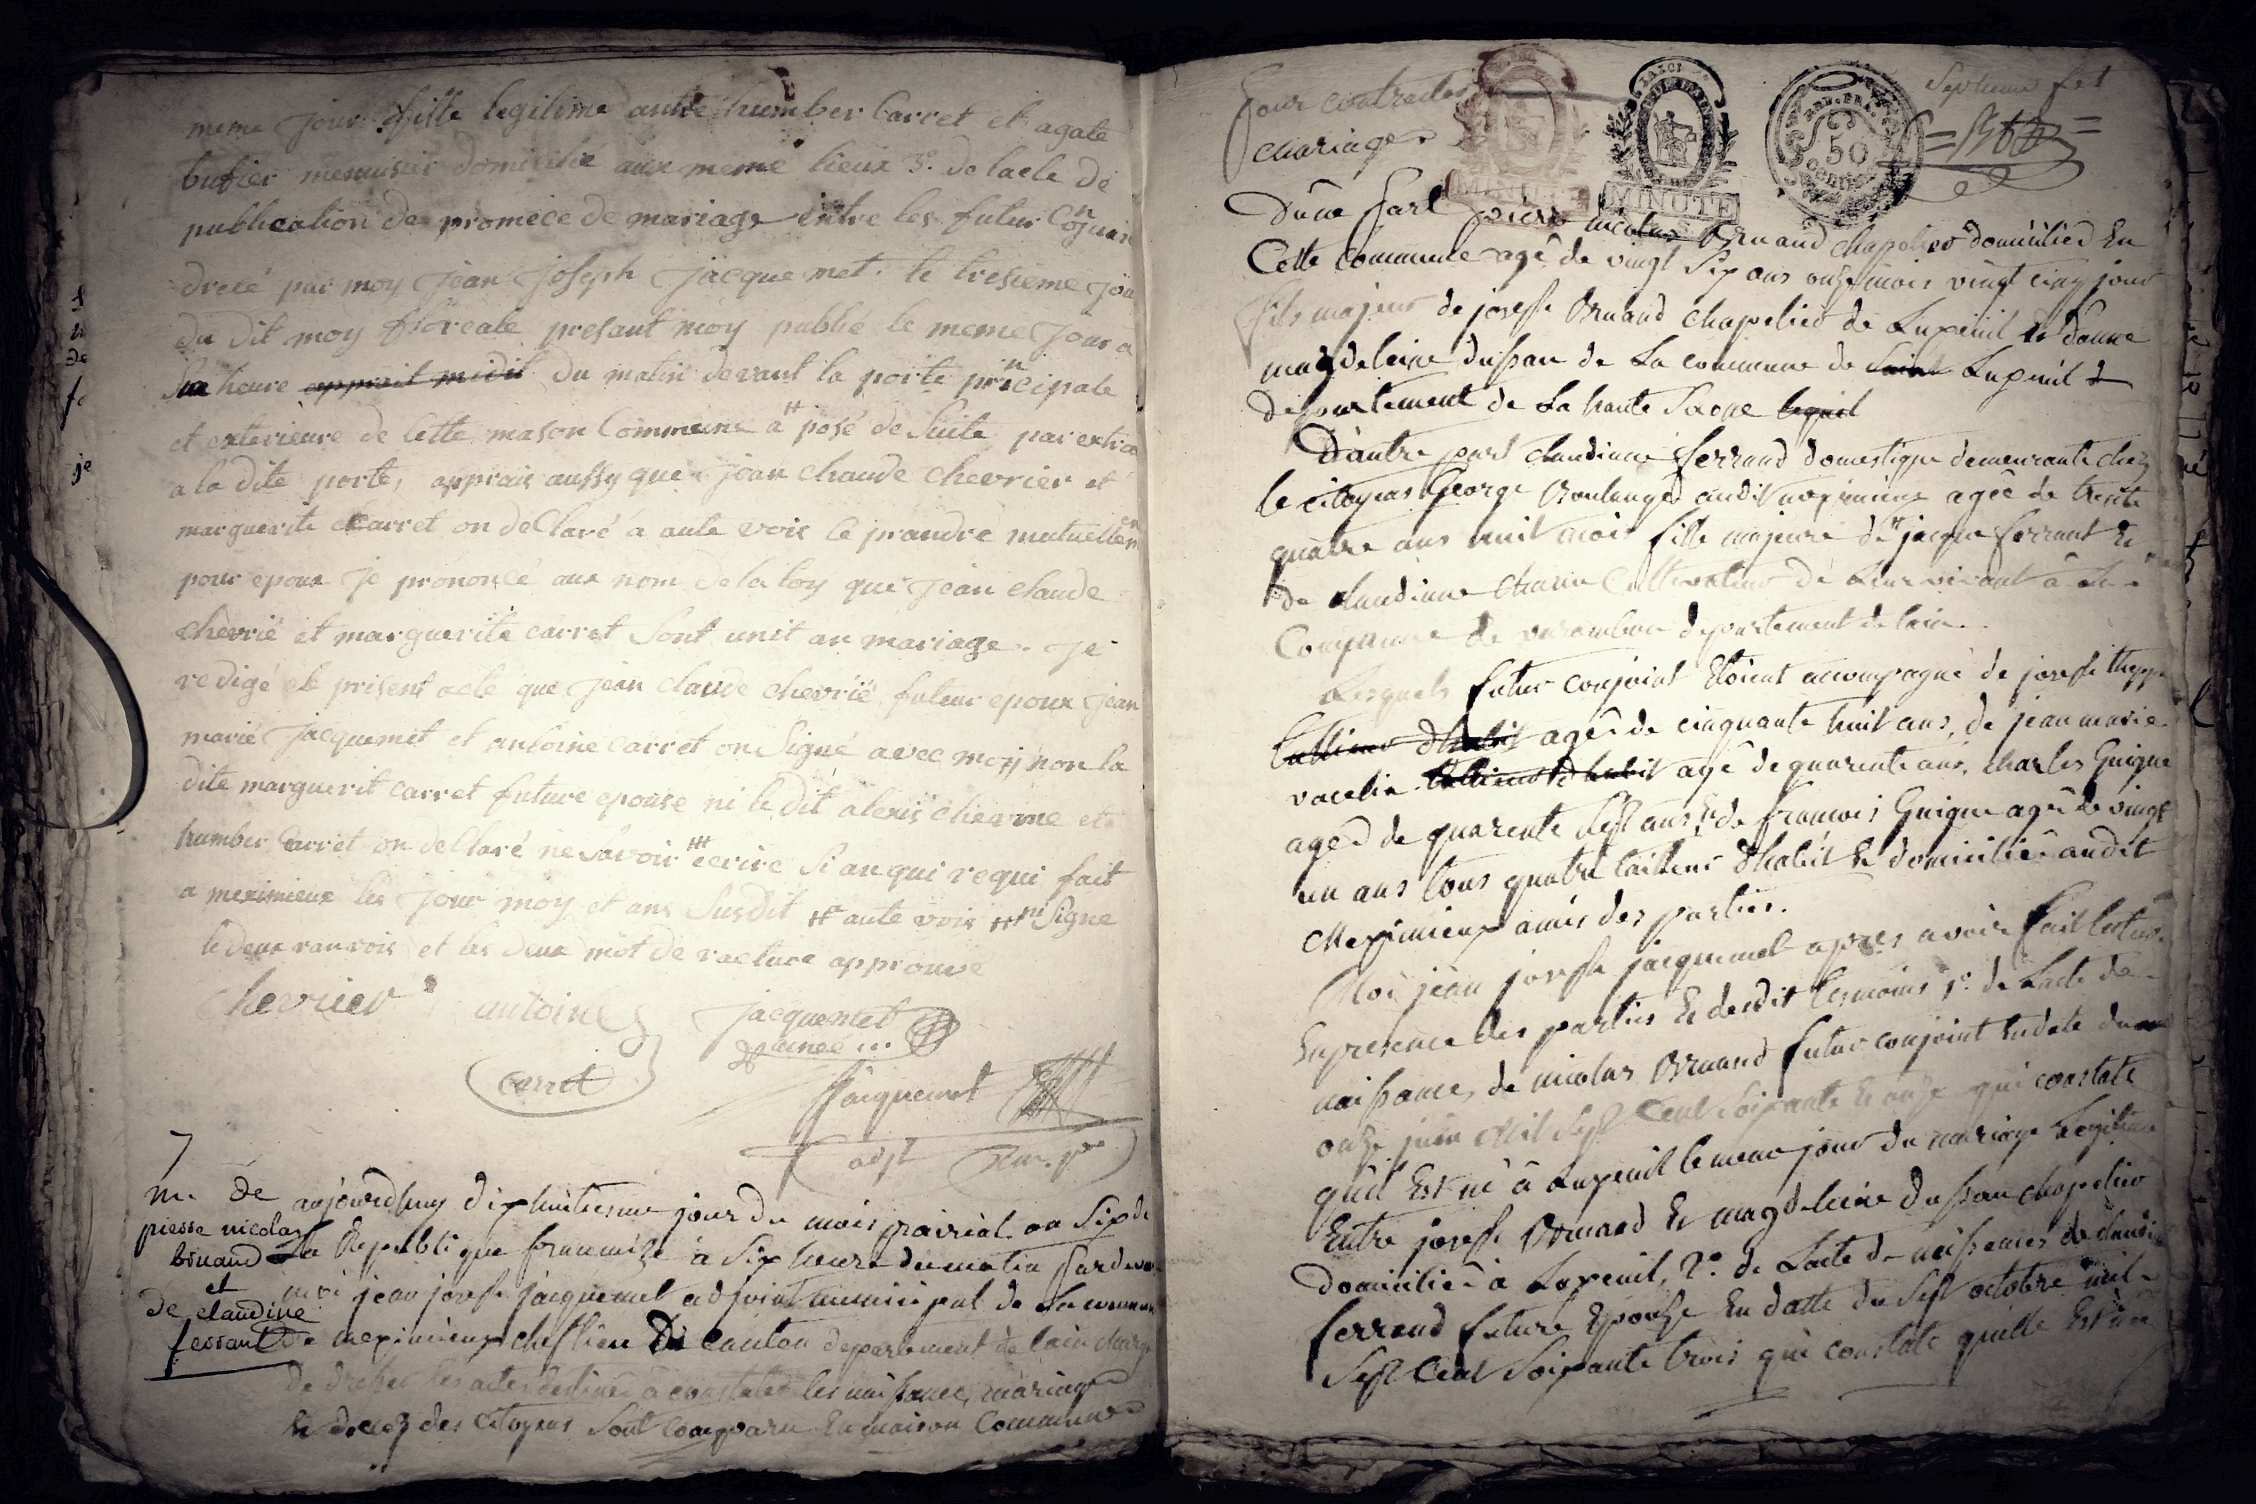 meme jour fille legitime dantre humber Carret et agate
bufier menusier domicilié aux meme lieux 3.° de lacte de
publication de promece de mariage entre les futur Conjoin
drecé par moy jean joseph jacquemet. le tresieme jour
du dit moy floreale presant moy publié le meme jour a
heure apprait midit du matin devant la porte principale
et exterieure de cette mason Commune a # posé de Suite par extrai
a la dite porte, apprais aussy que jean Claude Chevrier et
marguerite Carret on declaré a aute voix ce prandre mutuellem
pour epoux je prononcé aux nom de la loy que jean Claude
chevrié et marguerite carret Sont unit an mariage. je
redigé le prisent acte que jean Claude chevrié futeur epoux jean
marié jacquemet et antoine Carret on Signé avec moy non la
dite marguerit Carret future epouse ni le dit alexis chevrine et
humber Carret on declaré ne Savoir ## ecrire Si an qui requi fait
a meximieux les jour moy et ans Susdit # aute voix ## ni Signe
le deux ranvois et les deux mot de racture approuvé
Chevrier antoine jacquemet
ainée ...
Carret
Jacquemet
adjt
7
m. de
piesse nicolas
bruand
et
de claudine
ferrant
aujourdhuy dixhuitieme jour du mois prairial an Six de
la Republique francaize à Six heure du matin pardevant
moi jean joseph jacquemet adjoint municipal de la commune
de meximieux cheflieu Du Canton departement de lain charge
de dresser les actes destinés à constater les naissances, mariage
et deces des citoyens Sont comparu En maison Commune
Pour contracter
mariage
MINUTE
MINUTE
50
Septieme fet
D'une part pierre nicolas Bruand chapelier domicilié En
Cette commune agé de vingt Six ans onze mois vingt cinq jour
fils majeur de joseph Bruand chapelier de Luxeuil et de danne
magdeleine dussau de La commune de Saint Luxeuil
departement de La haute Saone lequel
D'autre part claudine ferrand domestique demeurante chez
le citoyens George Boulanger audit meximieux agée de trente
quatre ans huit mois fille majeure de jacque ferrant et
de claudine Cultivateur de Leur vivant à
Commune de varambon departement de lain.
Lesquels futur conjoint Etoient accompagné de joseph
tallieur d'habit agé de cinquante huit ans, de jean marie
vacelin tallieur d'habit agé de quarente ans, Charles Guigue
agé de quarente Sept ans, Et de francois Guigue agé de vingt
un ans tous quatre tailleur d'habit et domicilié audit
Meximieux amis des parties.
Moi jean joseph jacquemet apres avoir fait lecture
En presence des parties et desdit temoins 1.° de Lacte de
naissance, de nicolas Bruand futur conjoint En date du
onze juin Mil Sept Cent Soixante et onze qui constate
quil Est né à Luxeuil le meme jour du mariage Legitime
Entre joseph Bruand Et magdeleine dussau chapelier
domicilié à Luxeuil, 2.° de Lacte de naissances de claudine
ferrand future Epouse En datte du Sept octobre mil
Sept Cent Soixante trois qui constate quelle Est née